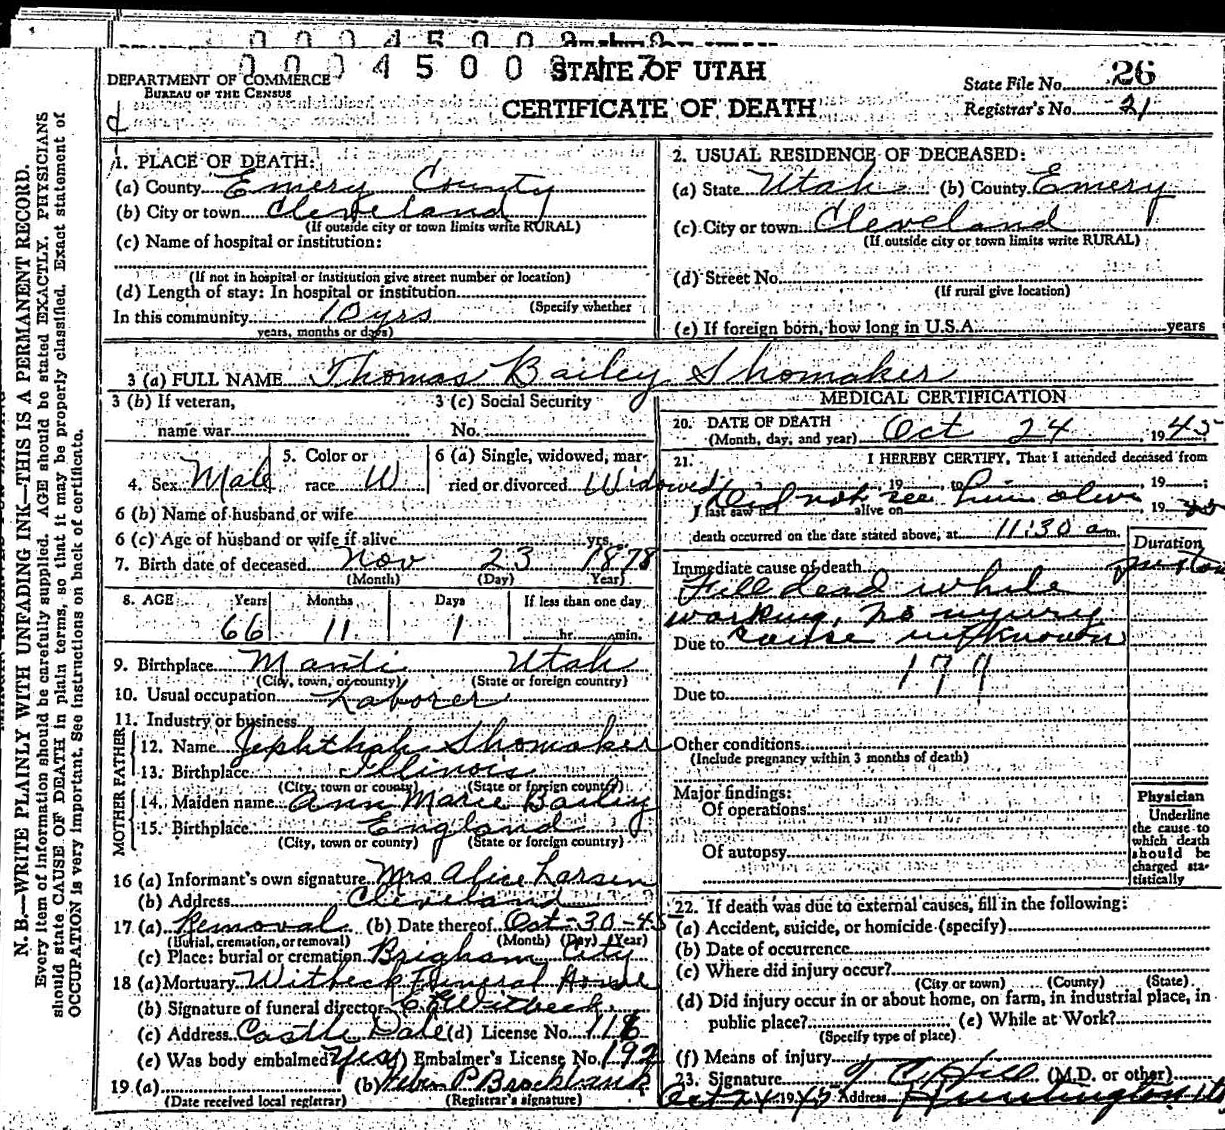 0 0 0 4 5 0 0 8 1 7
STATE OF UTAH
DEPARTMENT OF COMMERCE
BUREAU OF THE CENSUS
CERTIFICATE OF DEATH
State File No. 26
Registrar's No. 21
1. PLACE OF DEATH:
(a) County Emery County
(b) City or town Cleveland
(If outside city or town limits write RURAL)
(c) Name of hospital or institution:
(If not in hospital or institution give street number or location)
(d) Length of stay: In hospital or institution
(Specify whether
In this community 10 yrs
years, months or days)
2. USUAL RESIDENCE OF DECEASED:
(a) State Utah (b) County Emery
(c) City or town Cleveland
(If outside city or town limits write RURAL)
(d) Street No.
(If rural give location)
(e) If foreign born, how long in U.S.A. years
3 (a) FULL NAME Thomas Bailey Shomaker
3 (b) If veteran,
name war
3 (c) Social Security
No.
4. Sex Male
5. Color or
race W
6 (a) Single, widowed, mar-
ried or divorced Widowed
6 (b) Name of husband or wife
6 (c) Age of husband or wife if alive yrs.
7. Birth date of deceased Nov 23 1878
(Month) (Day) Year)
8. AGE Years Months Days If less than one day
66 11 1 hr. min.
9. Birthplace Manti Utah
(City, town, or county) (State or foreign country)
10. Usual occupation Laborer
11. Industry or business
FATHER
12. Name Jephthah Shomaker
13. Birthplace Illinois
(City, town or county) (State or foreign country)
MOTHER
14. Maiden name Ann Marie Bailey
15. Birthplace England
(City, town or county) (State or foreign country)
16 (a) Informant's own signature Mrs Alice Larsen
(b) Address Cleveland
17 (a) Removal (b) Date thereof Oct-30-45
(Burial, cremation, or removal) (Month) (Day) (Year)
(c) Place: burial or cremation Brigham City
18 (a) Mortuary Witbeck Funeral Home
(b) Signature of funeral director C E Witbeck
(c) Address Castle Dale (d) License No. 116
(e) Was body embalmed? Yes (f) Embalmer's License No. 192
19 (a) (b) Peter P. Brockbank
(Date received local registrar) (Registrar's signature)
MEDICAL CERTIFICATION
20. DATE OF DEATH
(Month, day, and year) Oct 24, 1945
21. I HEREBY CERTIFY, That I attended deceased from
, 19 , to , 19 ;
I last saw h alive on , 19
Did not see him alive
death occurred on the date stated above, at 11:30 a m.
Duration
Immediate cause of death
Fell dead while
working, no injury
Due to cause unknown
199
Due to
Other conditions
(Include pregnancy within 3 months of death)
Major findings:
Of operations
Of autopsy
Physician
Underline
the cause to
which death
should be
charged sta-
tistically
22. If death was due to external causes, fill in the following:
(a) Accident, suicide, or homicide (specify)
(b) Date of occurrence
(c) Where did injury occur?
(City or town) (County) (State)
(d) Did injury occur in or about home, on farm, in industrial place, in
public place? (e) While at Work?
(Specify type of place)
(f) Means of injury
23. Signature T C Hill (M.D. or other)
Oct 24 1945 Address Huntington Ut
N. B.—WRITE PLAINLY WITH UNFADING INK—THIS IS A PERMANENT RECORD.
Every item of information should be carefully supplied. AGE should be stated EXACTLY. PHYSICIANS
should state CAUSE OF DEATH in plain terms, so that it may be properly classified. Exact statement of
OCCUPATION is very important. See instructions on back of certificate.